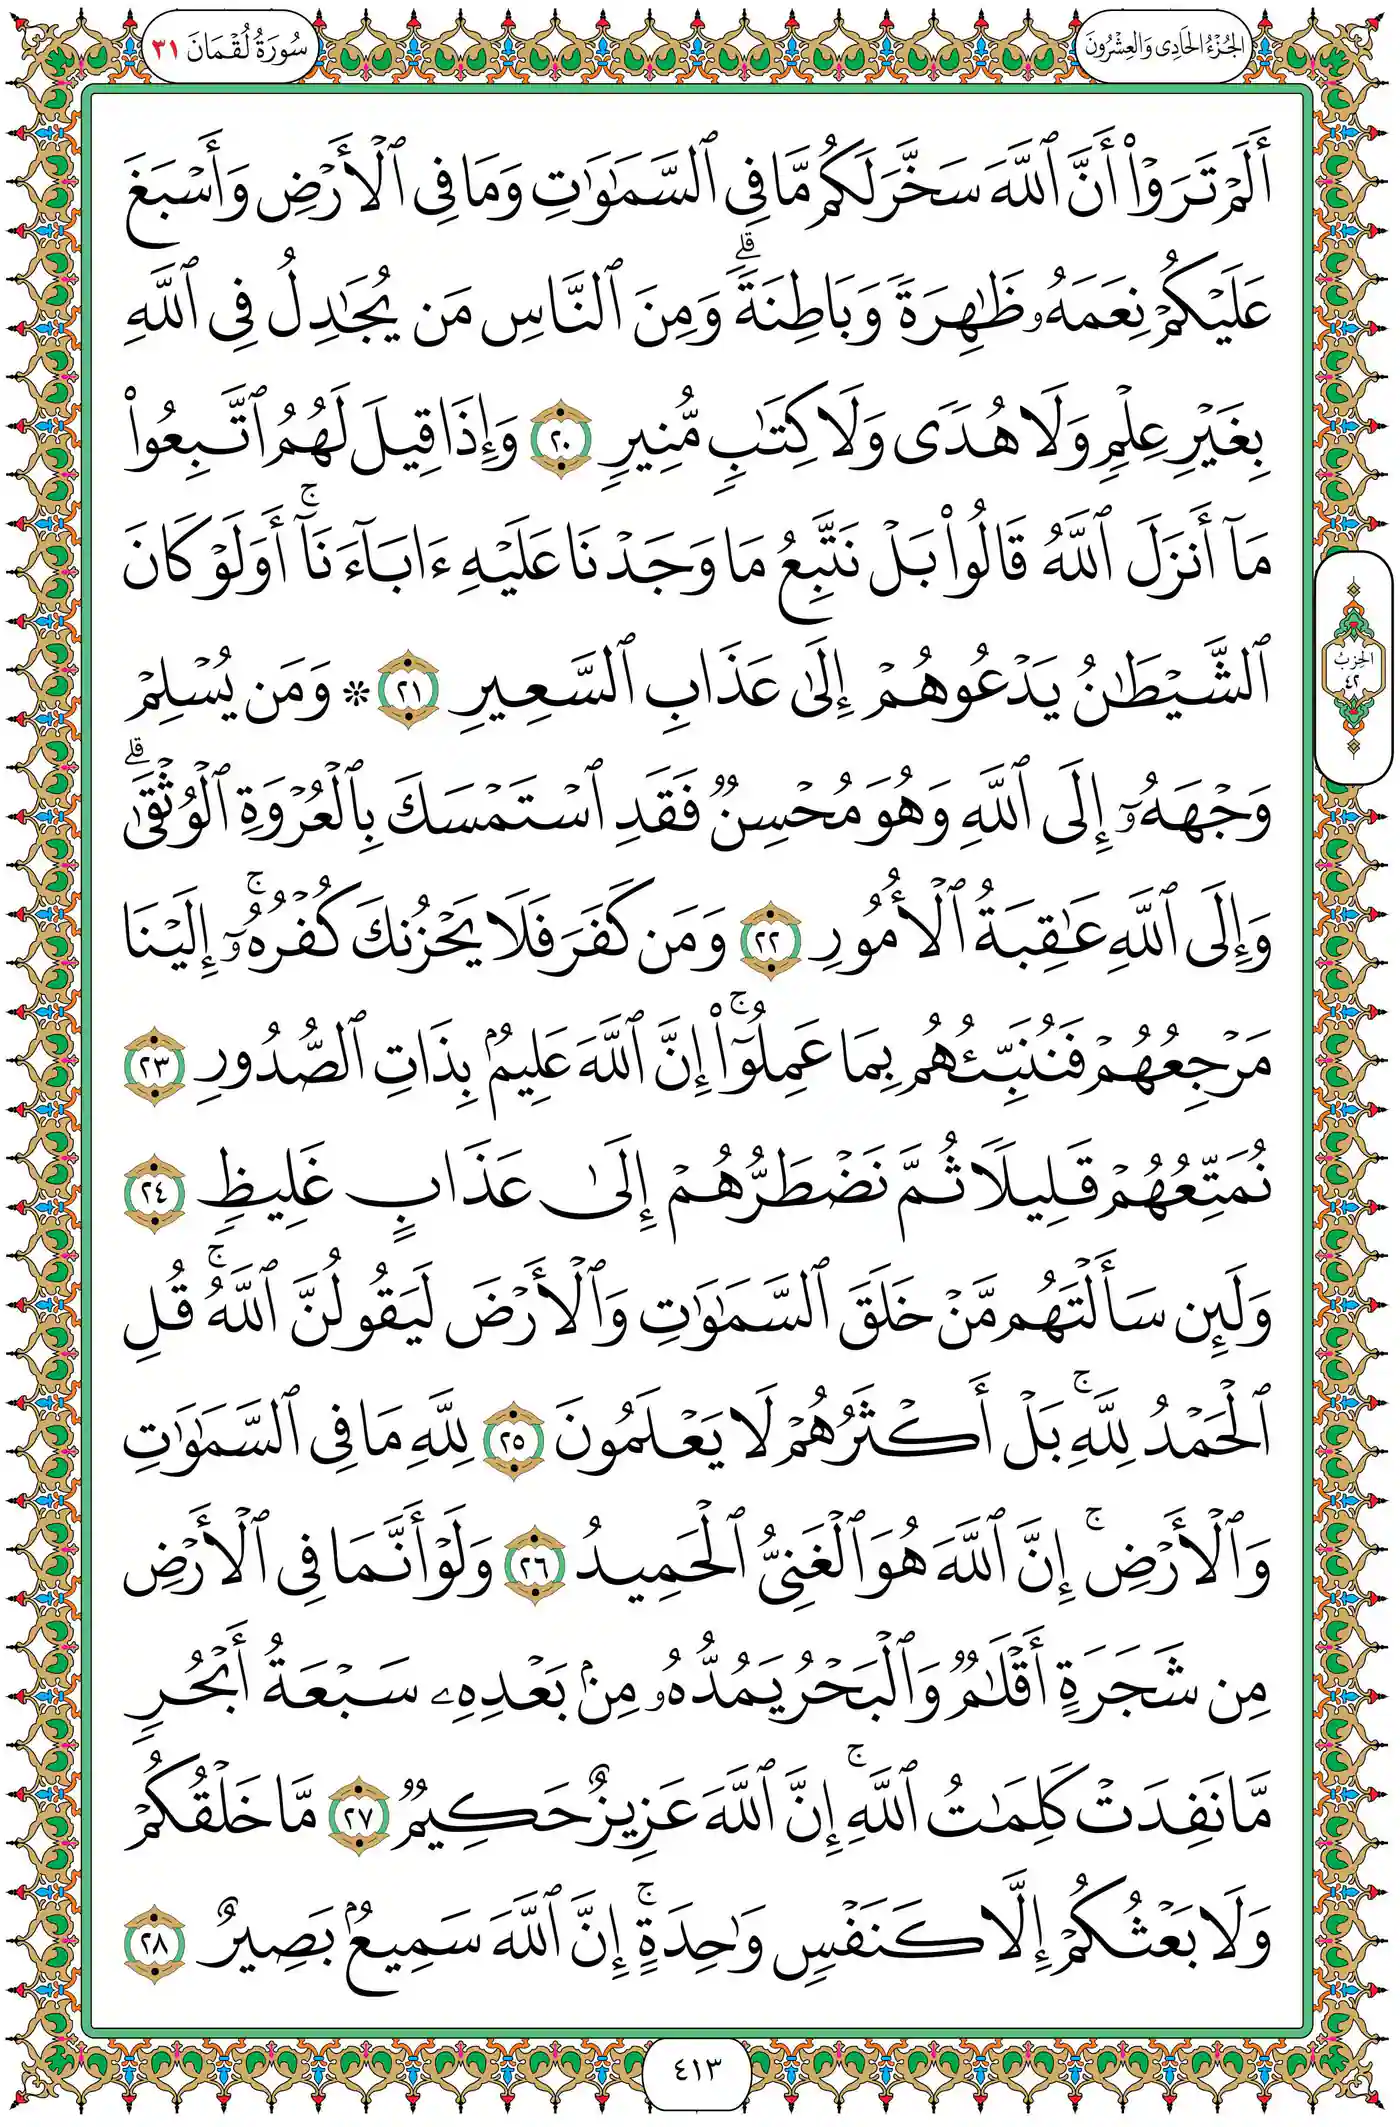 الجُزْءُ الحَادِى وَالعِشْرُونَ
سُورَةُ لُقْمَانَ ٣١
أَلَمْ تَرَوْا۟ أَنَّ ٱللَّهَ سَخَّرَ لَكُم مَّا فِى ٱلسَّمَـٰوَٰتِ وَمَا فِى ٱلْأَرْضِ وَأَسْبَغَ
عَلَيْكُمْ نِعَمَهُۥ ظَـٰهِرَةً وَبَاطِنَةً ۗ وَمِنَ ٱلنَّاسِ مَن يُجَـٰدِلُ فِى ٱللَّهِ
بِغَيْرِ عِلْمٍ وَلَا هُدًى وَلَا كِتَـٰبٍ مُّنِيرٍ ٢٠ وَإِذَا قِيلَ لَهُمُ ٱتَّبِعُوا۟
مَآ أَنزَلَ ٱللَّهُ قَالُوا۟ بَلْ نَتَّبِعُ مَا وَجَدْنَا عَلَيْهِ ءَابَآءَنَآ ۚ أَوَلَوْ كَانَ
ٱلشَّيْطَـٰنُ يَدْعُوهُمْ إِلَىٰ عَذَابِ ٱلسَّعِيرِ ٢١ * وَمَن يُسْلِمْ
الحِزْبُ
٤٢
وَجْهَهُۥٓ إِلَى ٱللَّهِ وَهُوَ مُحْسِنٌ فَقَدِ ٱسْتَمْسَكَ بِٱلْعُرْوَةِ ٱلْوُثْقَىٰ ۗ
وَإِلَى ٱللَّهِ عَـٰقِبَةُ ٱلْأُمُورِ ٢٢ وَمَن كَفَرَ فَلَا يَحْزُنكَ كُفْرُهُۥٓ ۚ إِلَيْنَا
مَرْجِعُهُمْ فَنُنَبِّئُهُم بِمَا عَمِلُوٓا۟ ۚ إِنَّ ٱللَّهَ عَلِيمٌۢ بِذَاتِ ٱلصُّدُورِ ٢٣
نُمَتِّعُهُمْ قَلِيلًا ثُمَّ نَضْطَرُّهُمْ إِلَىٰ عَذَابٍ غَلِيظٍ ٢٤
وَلَئِن سَأَلْتَهُم مَّنْ خَلَقَ ٱلسَّمَـٰوَٰتِ وَٱلْأَرْضَ لَيَقُولُنَّ ٱللَّهُ ۚ قُلِ
ٱلْحَمْدُ لِلَّهِ ۚ بَلْ أَكْثَرُهُمْ لَا يَعْلَمُونَ ٢٥ لِلَّهِ مَا فِى ٱلسَّمَـٰوَٰتِ
وَٱلْأَرْضِ ۚ إِنَّ ٱللَّهَ هُوَ ٱلْغَنِىُّ ٱلْحَمِيدُ ٢٦ وَلَوْ أَنَّمَا فِى ٱلْأَرْضِ
مِن شَجَرَةٍ أَقْلَـٰمٌ وَٱلْبَحْرُ يَمُدُّهُۥ مِنۢ بَعْدِهِۦ سَبْعَةُ أَبْحُرٍ
مَّا نَفِدَتْ كَلِمَـٰتُ ٱللَّهِ ۚ إِنَّ ٱللَّهَ عَزِيزٌ حَكِيمٌ ٢٧ مَّا خَلْقُكُمْ
وَلَا بَعْثُكُمْ إِلَّا كَنَفْسٍ وَٰحِدَةٍ ۚ إِنَّ ٱللَّهَ سَمِيعٌۢ بَصِيرٌ ٢٨
٤١٣